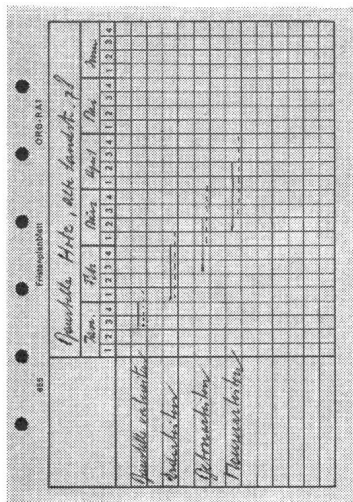 Fristenplanblatt ORG-RA1
Baustelle Hotz, alte Landstr. 78
Jan. Feb. März April Mai Juni
1 2 3 4 1 2 3 4 1 2 3 4 1 2 3 4 1 2 3 4 1 2 3 4
Baustelle vorbereiten
Erdarbeiten
Betonarbeiten
Maurerarbeiten